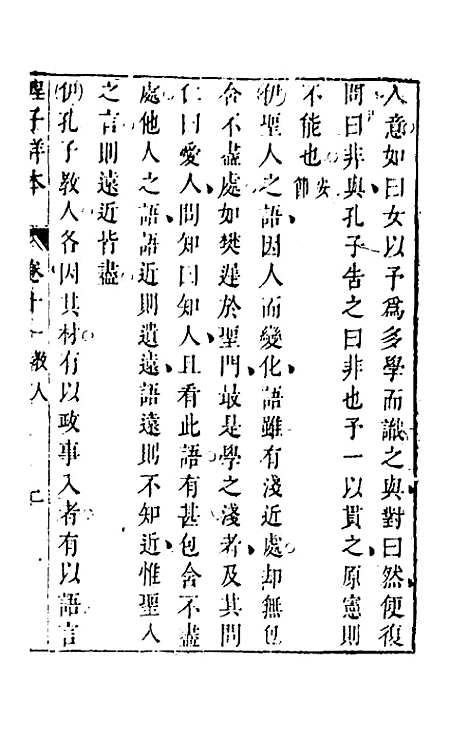 人意如曰女以予爲多學而識之與對曰然便復
問曰非與孔子告之曰非也予一以貫之原憲則
不能也安節
伊聖人之語因人而變化語雖有淺近處却無包
含不盡處如樊遲於聖門最是學之淺者及其問
仁曰愛人問知曰知人且看此語有甚包含不盡
處他人之語語近則遺遠語遠則不知近惟聖人
之言則遠近皆盡
伊孔子教人各因其材有以政事入者有以語言
程子詳本 卷十一 教人